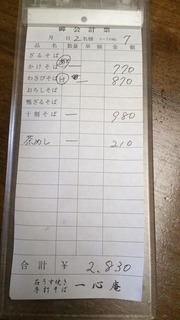 御会計票
月 日 2名様 テーブルNo. 7
品名 数量 単価 金額
ざるそば
かけそば 一 770
わさびそば 一 870
おろしそば
鴨ざるそば
十割そば 一 980
茶めし 一 210
合計 ¥ 2,830
石うす焼き
手打そば 一心庵